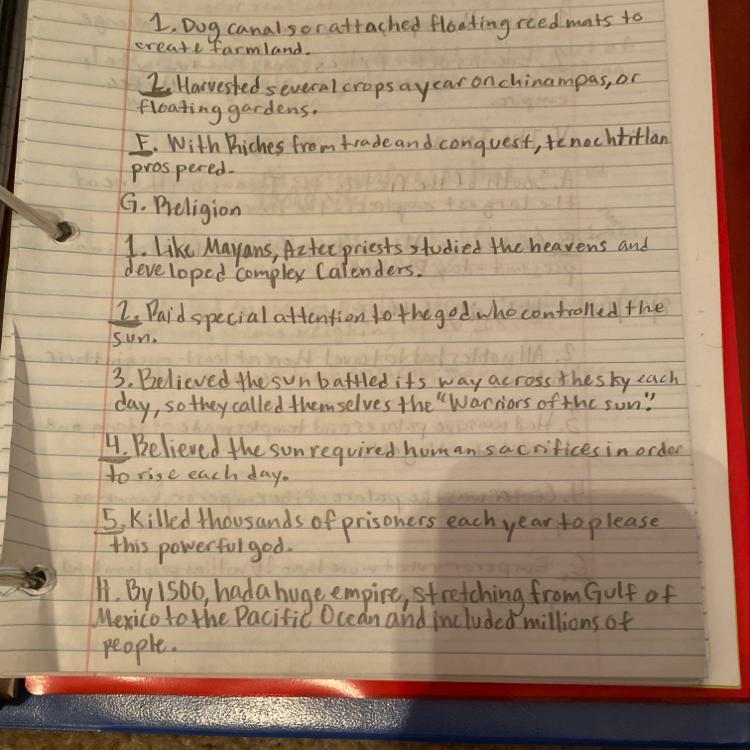 1. Dug canals or attached floating reed mats to
create farmland.
2. Harvested several crops a year on chinampas, or
floating gardens.
F. With Riches from trade and conquest, tenochtitlan
prospered.
G. Religion
1. Like Mayans, Aztec priests studied the heavens and
developed complex Calenders.
2. Paid special attention to the god who controlled the
sun.
3. Believed the sun battled its way across the sky each
day, so they called themselves the "Warriors of the sun."
4. Believed the sun required human sacrifices in order
to rise each day.
5. Killed thousands of prisoners each year to please
this powerful god.
H. By 1500, had a huge empire, stretching from Gulf of
Mexico to the Pacific Ocean and included millions of
people.